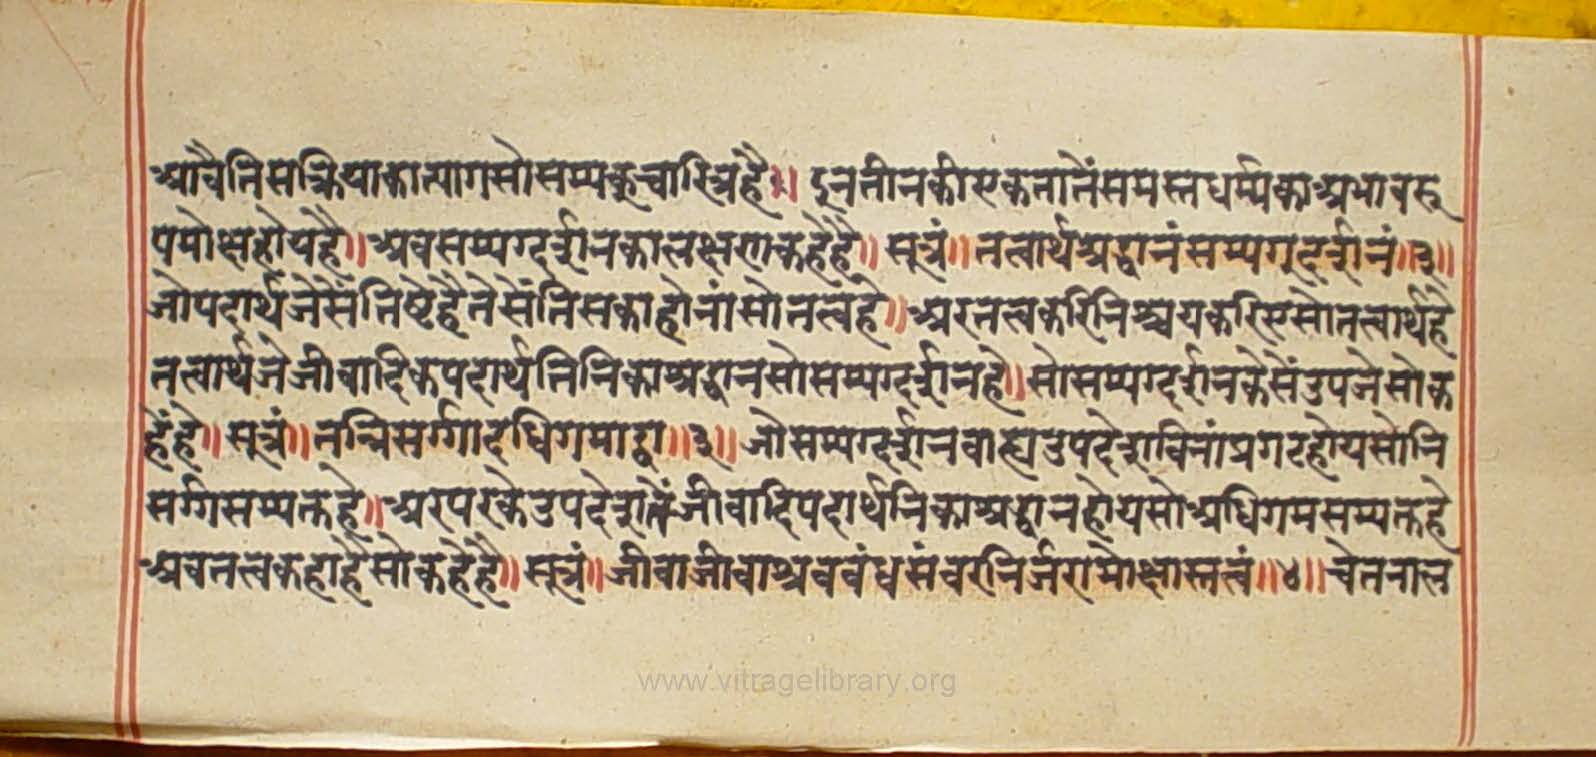 आवैतिसक्रियाकात्यागसोसम्यक्चारित्रहै॥ इनतीनकीएकतातैंसमस्तधर्म्मकाअभावरू
पमोक्षहोयहै॥ अवसम्यग्दर्शनकालक्षणकहैहै॥ सूत्रं॥ तत्वार्थश्रद्धानंसम्यग्दर्शनं॥२॥
जोपदार्थजेसैंतिष्टेहैतेसैंतिसकाहोनांसोतत्वहे॥ अरतत्वकरिनिश्चयकरिएसोतत्वार्थहै
तत्वार्थजेजीवादिकपदार्थतिनिकाश्रद्धानसोसम्यग्दर्शनहै॥ सोसम्यग्दर्शनकेसैंउपजेसोक
हैंहे॥ सूत्रं॥ तन्निसर्ग्गादधिगमाद्वा॥३॥ जोसम्यग्दर्शनवाह्यउपदेशविनांप्रगटहोयसोनि
सर्ग्गसम्यक्तहे॥ अरपरकेउपदेशतैंजीवादिपदार्थनिकाश्रद्धानहोयसोअधिगमसम्यक्तहे
अवतत्वकहाहैसोकहैहै॥ सूत्रं॥ जीवाजीवाश्रववंधसंवरनिर्जरामोक्षास्तत्वं॥४॥ चेतनाल
www.vitragelibrary.org